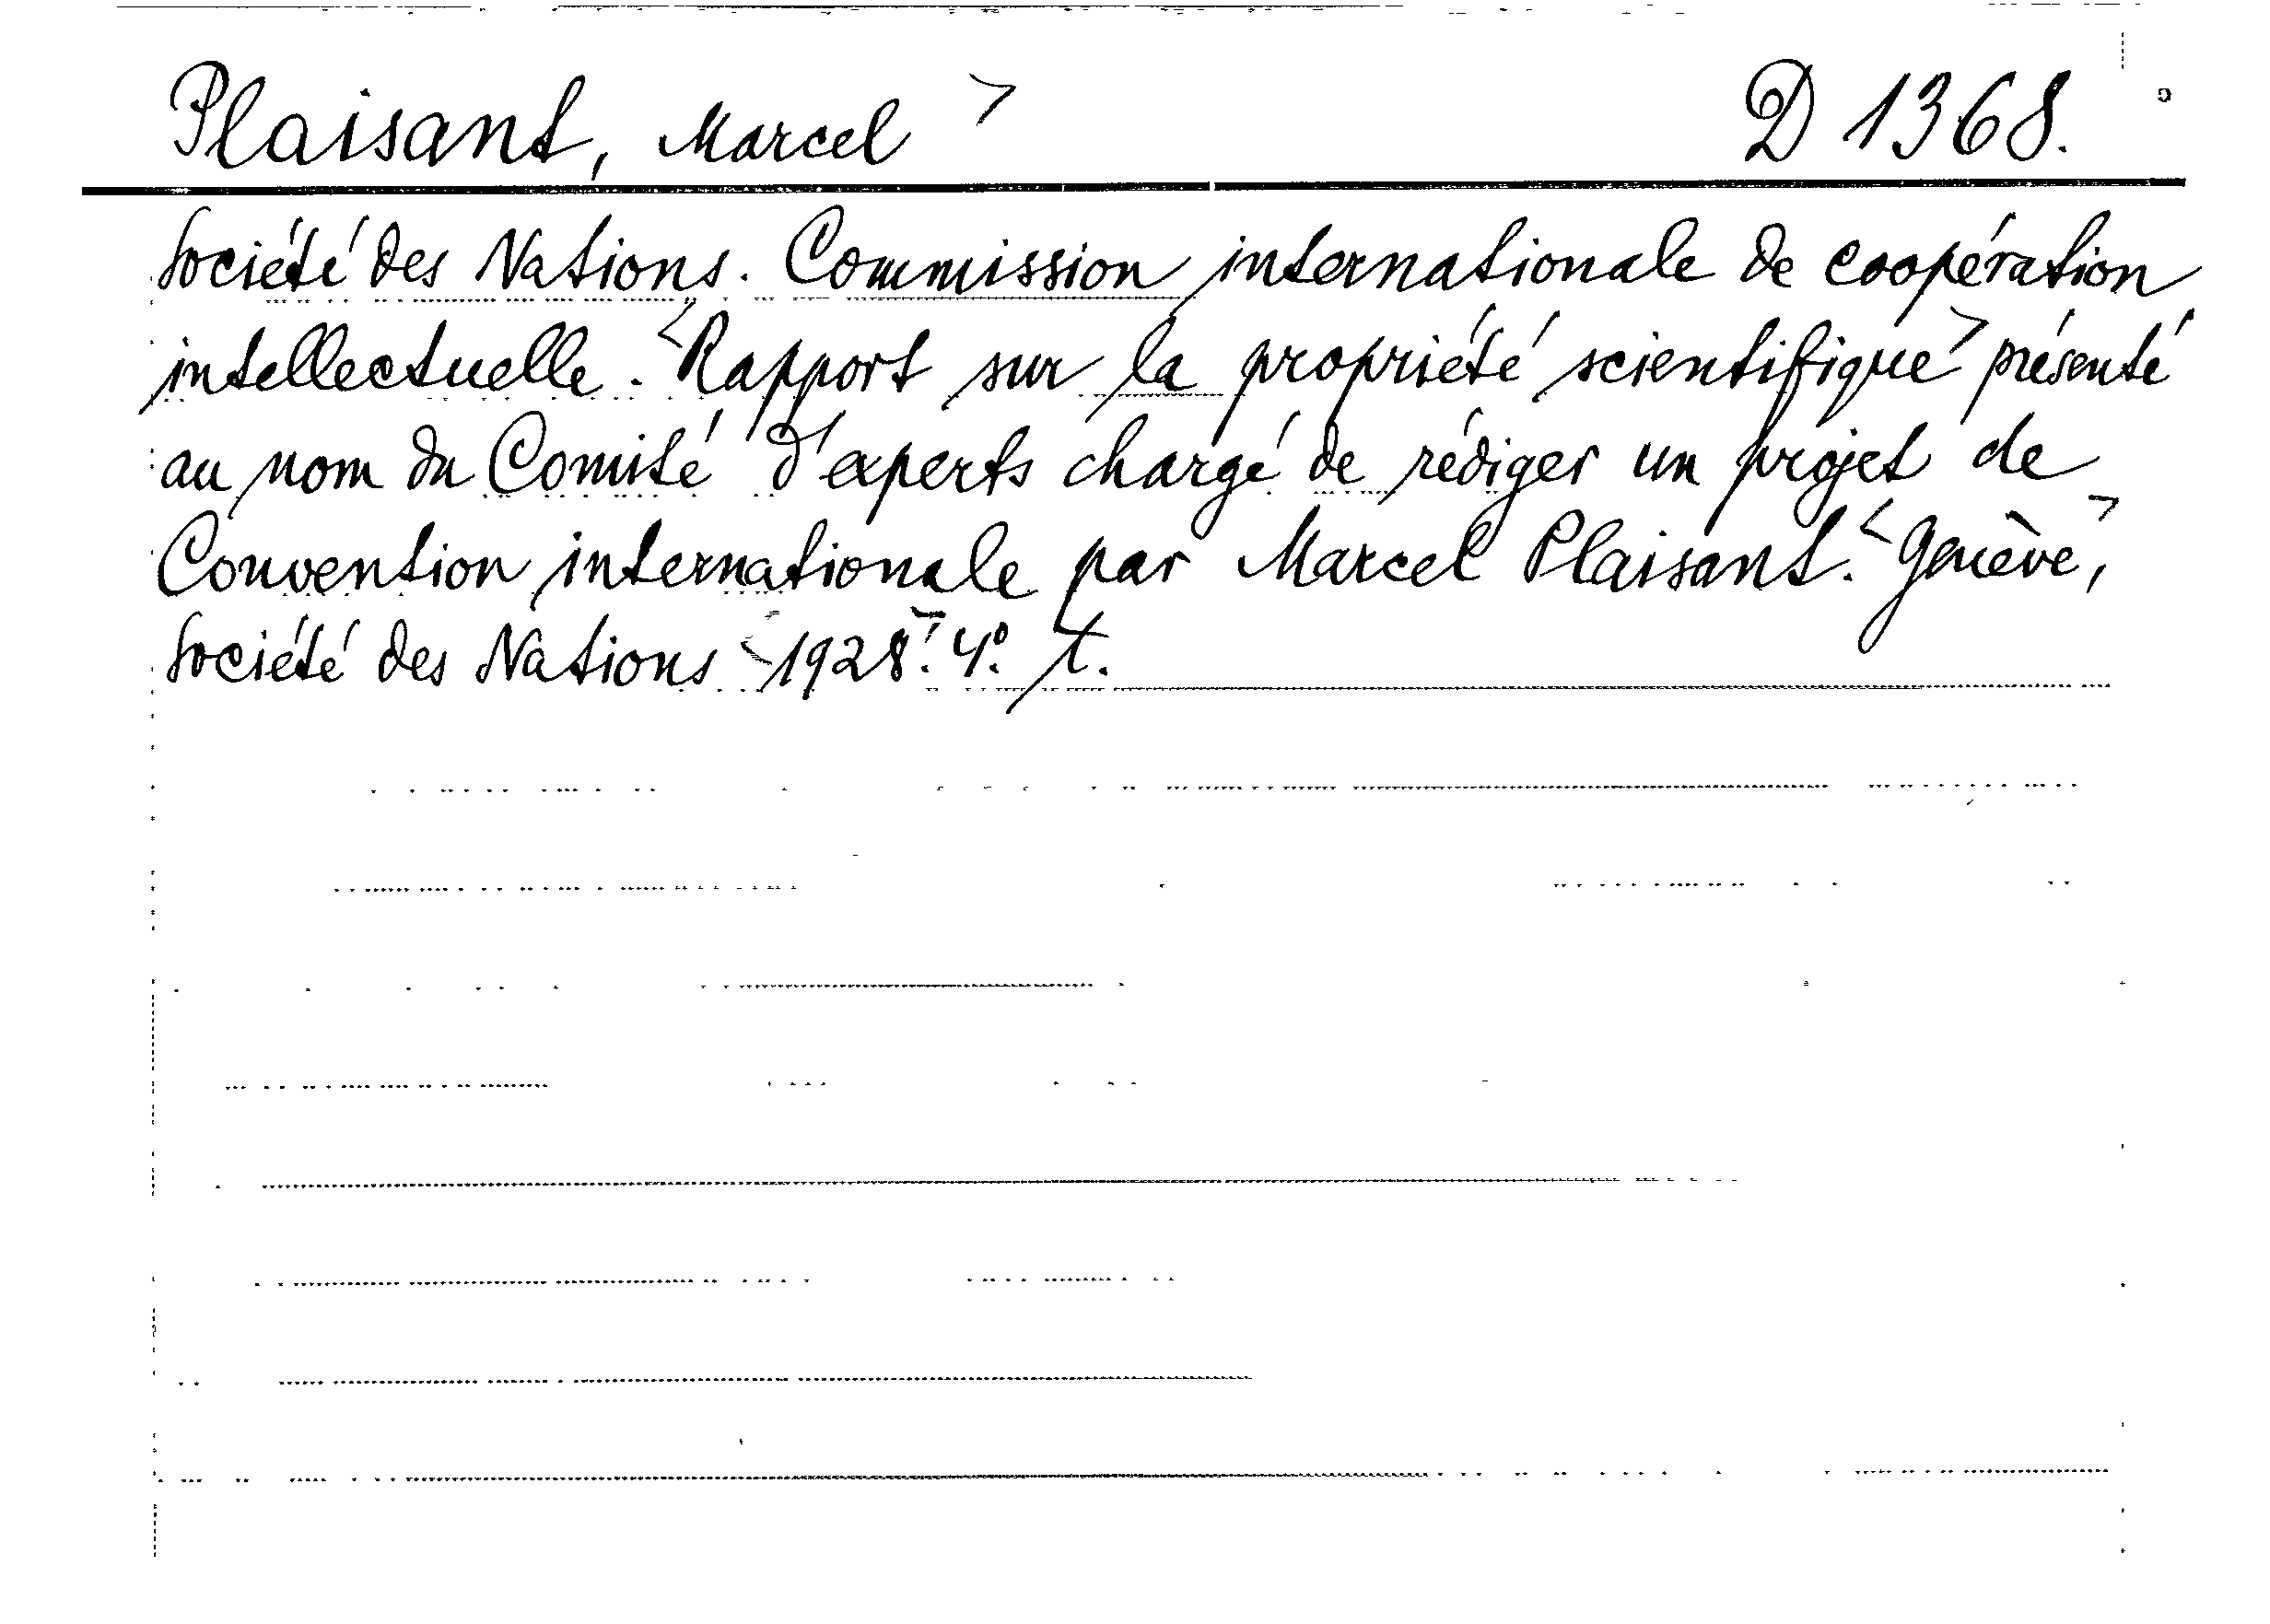 Plaisant, Marcel > D 1368.
Société des Nations. Commission internationale de coopération
intellectuelle. <Rapport sur la propriété scientifique> présenté
au nom du Comité d'experts chargé de rédiger un projet de
Convention internationale par Marcel Plaisant. <Genève,>
Société des Nations <1928>. 4°. t.